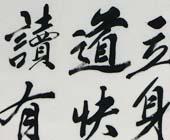 立身
道快
讀有